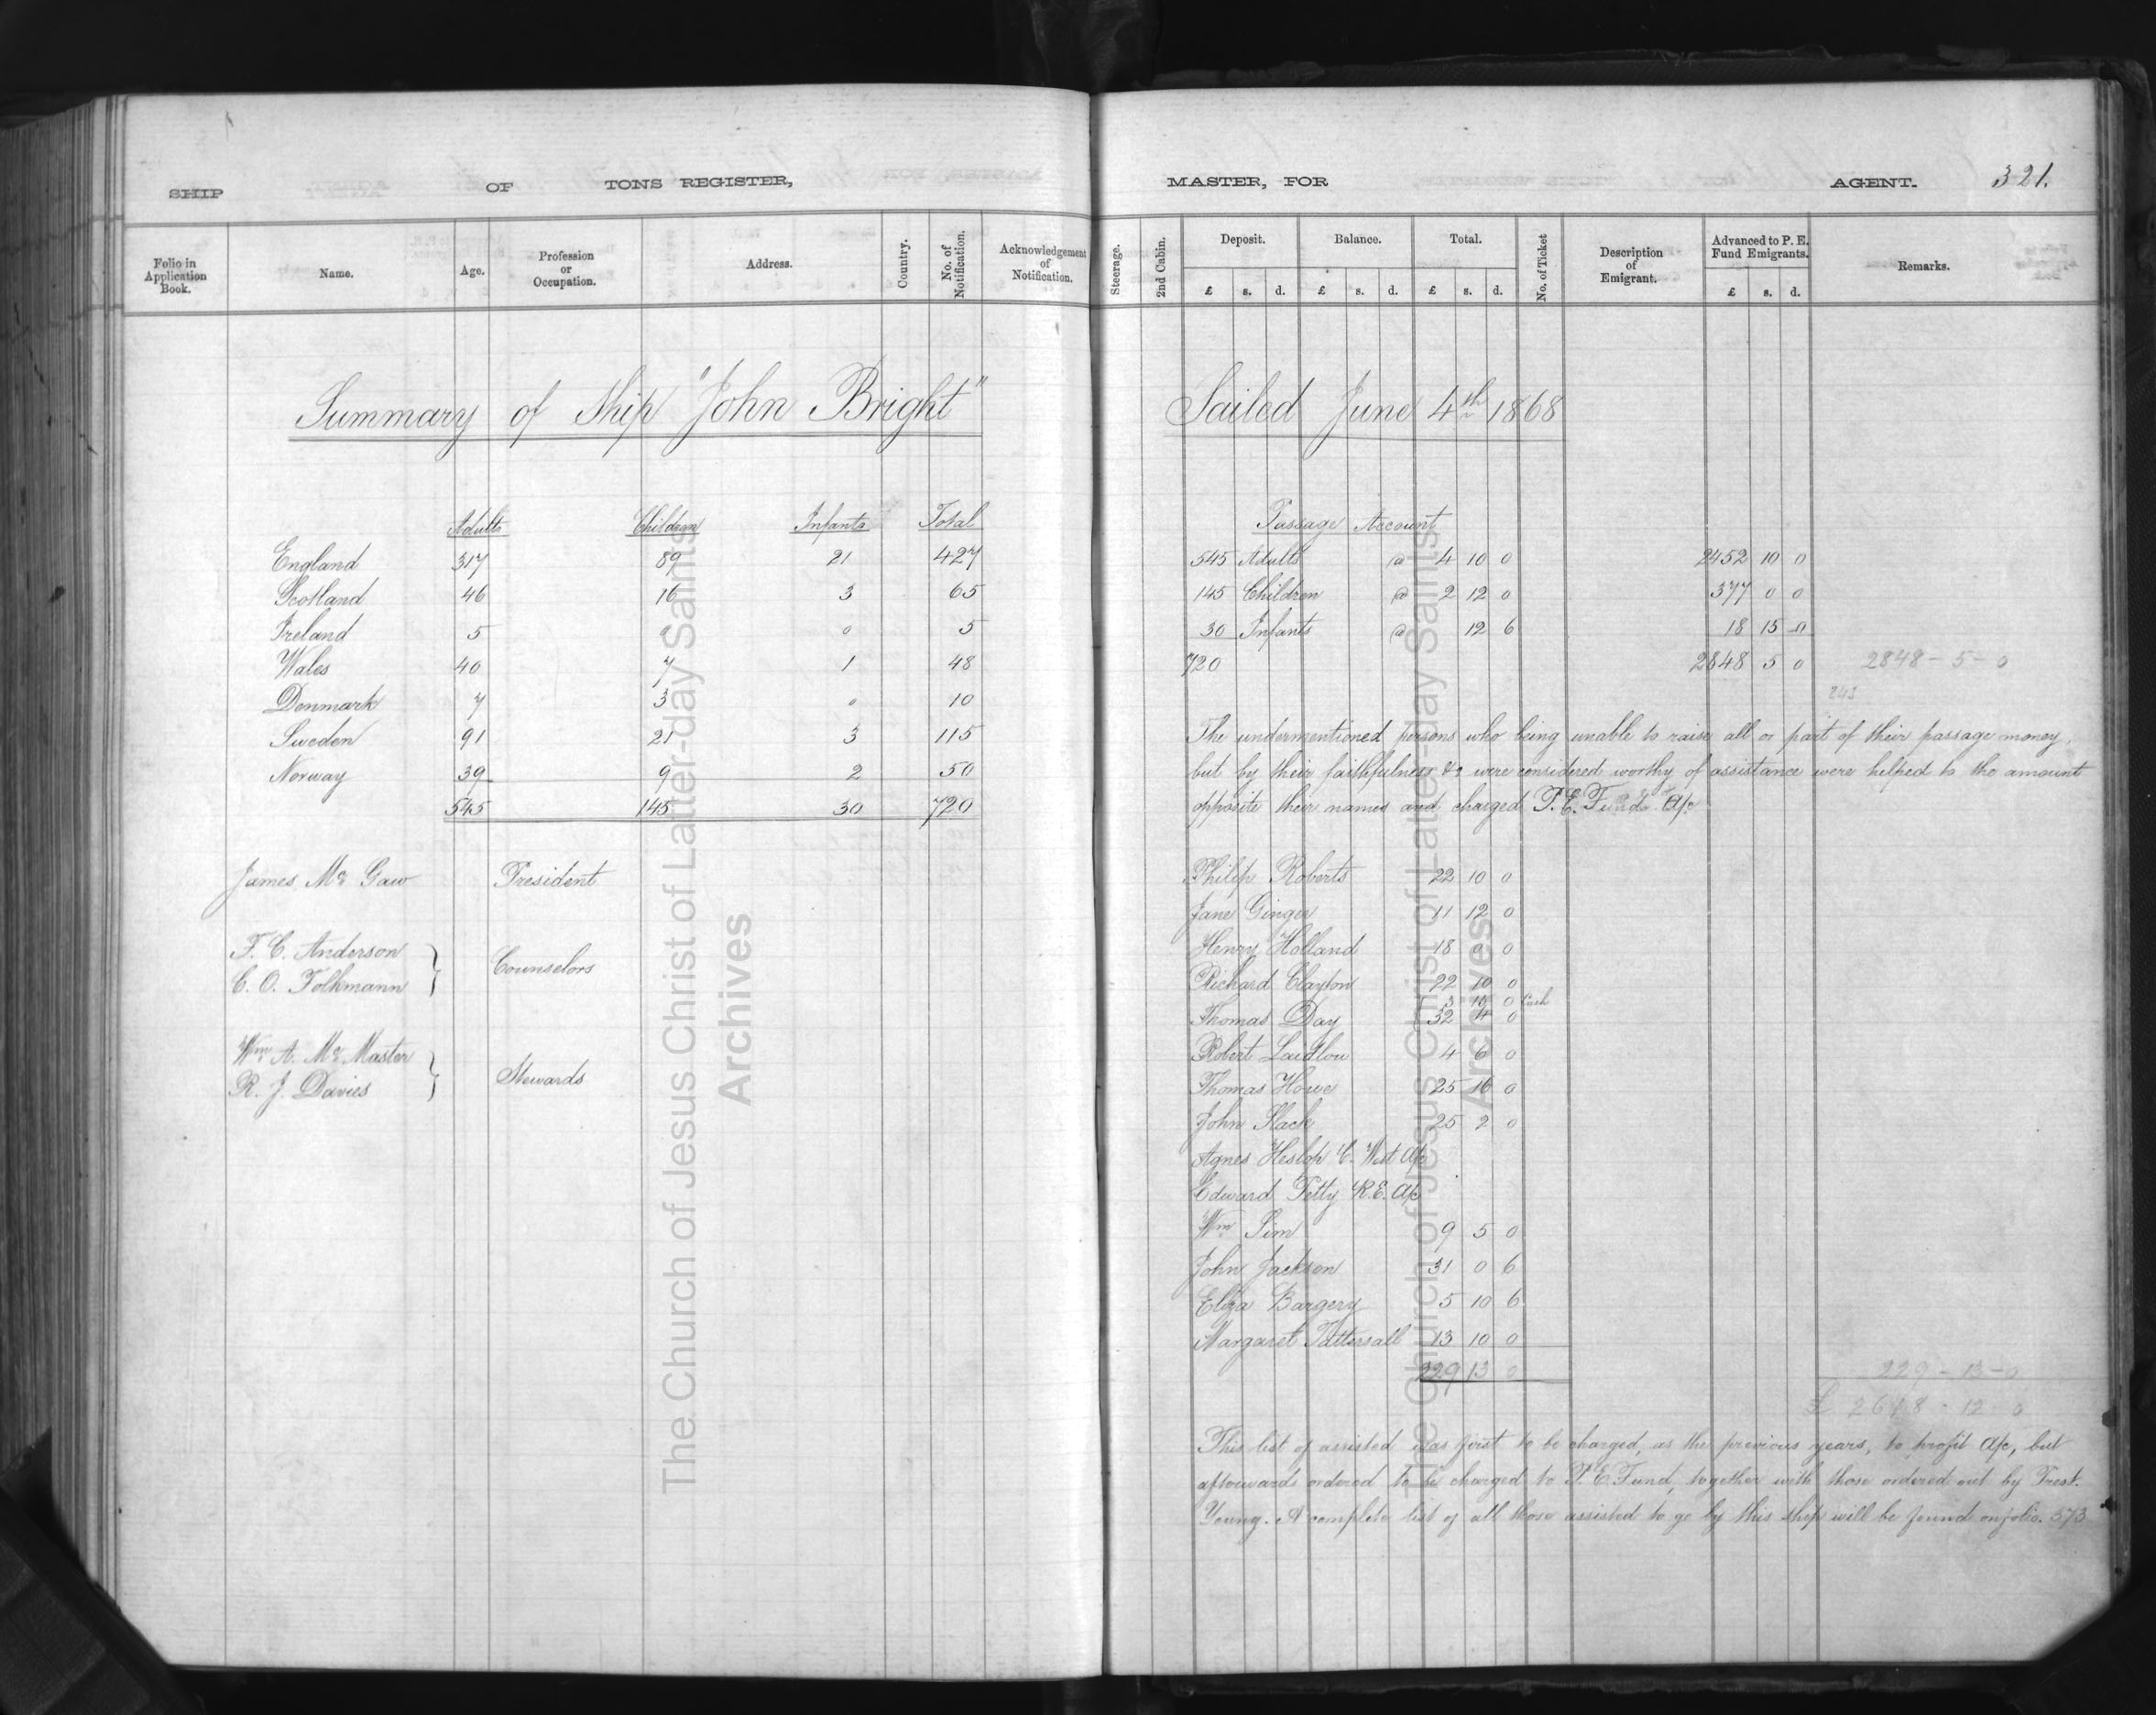 SHIP OF TONS REGISTER, MASTER, FOR AGENT. 321.
Folio in Application Book. Name. Age. Profession or Occupation. Address. Country. No. of Notification. Acknowledgement of Notification. Steerage. 2nd Cabin. Deposit. Balance. Total. No. of Ticket Description of Emigrant. Advanced to P. E. Fund Emigrants. Remarks.
£ s. d. £ s. d. £ s. d. £ s. d.
Summary of Ship "John Bright" Sailed June 4th 1868
Adults Children Infants Total
England 317 89 21 427
Scotland 46 16 3 65
Ireland 5 0 0 5
Wales 40 7 1 48
Denmark 7 3 0 10
Sweden 91 21 3 115
Norway 39 9 2 50
545 145 30 720
James Mc Gaw President
F. C. Anderson
C. O. Folkmann
Counselors
Wm A. Mc Master
R. J. Davies
Stewards
Passage Account
545 Adults @ 4 10 0 2452 10 0
145 Children @ 2 12 0 377 0 0
30 Infants @ 12 6 18 15 0
720 2848 5 0 2848-5-0
243
The undermentioned persons who being unable to raise all or part of their passage money,
but by their faithfulness &c were considered worthy of assistance were helped to the amount
opposite their names and charged P.E. Funds a/c
Philip Roberts 22 10 0
Jane Ginger 11 12 0
Henry Holland 18 0 0
Richard Clayton 22 10 0
3 10 0 Cash
Thomas Day 32 4 0
Robert Laidlow 4 6 0
Thomas Howe 25 16 0
John Slack 25 2 0
Agnes Heslop C. West a/c
Edward Petty R.E. a/c
Wm Sim 9 5 0
John Jackson 31 0 6
Eliza Bargery 5 10 6
Margaret Tattersall 13 10 0
229 13 0 229-13-0
£ 2618-12 0
This list of assisted was first to be charged, as the previous years, to profit a/c, but
afterwards ordered to be charged to P.E. Fund, together with those ordered out by Prest.
Young. A complete list of all those assisted to go by this ship will be found on folio. 573
The Church of Jesus Christ of Latter-day Saints
Archives
The Church of Jesus Christ of Latter-day Saints
Archives